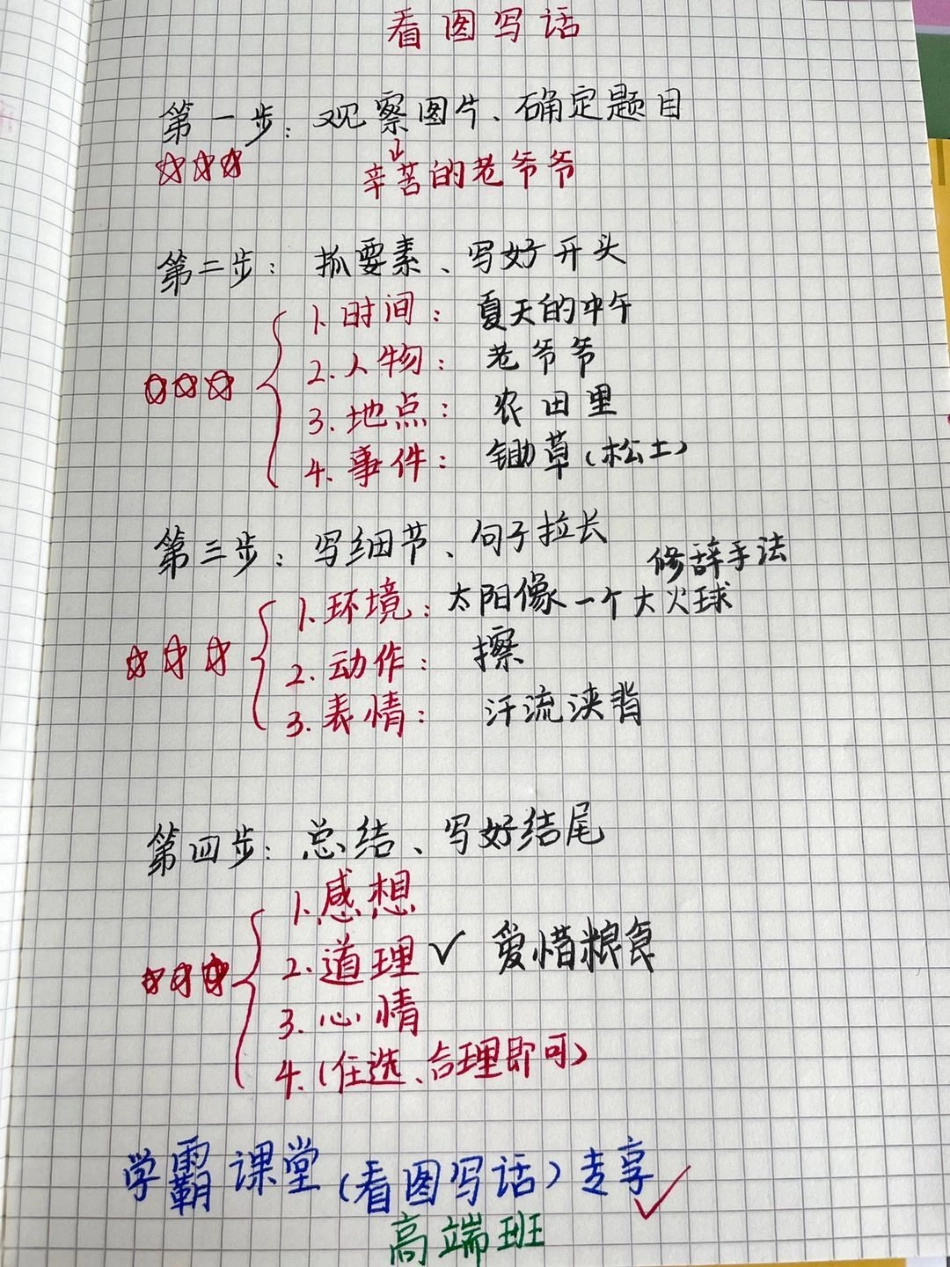 看图写话
第一步：观察图片、确定题目
↓
辛苦的老爷爷
第二步：抓要素、写好开头
1、时间：夏天的中午
2、人物：老爷爷
3、地点：农田里
4、事件：锄草（松土）
第三步：写细节、句子拉长
修辞手法
1、环境：太阳像一个大火球
2、动作：擦
3、表情：汗流浃背
第四步：总结、写好结尾
1、感想
2、道理 ✓ 爱惜粮食
3、心情
4、（任选、合理即可）
学霸课堂（看图写话）专享✓
高端班